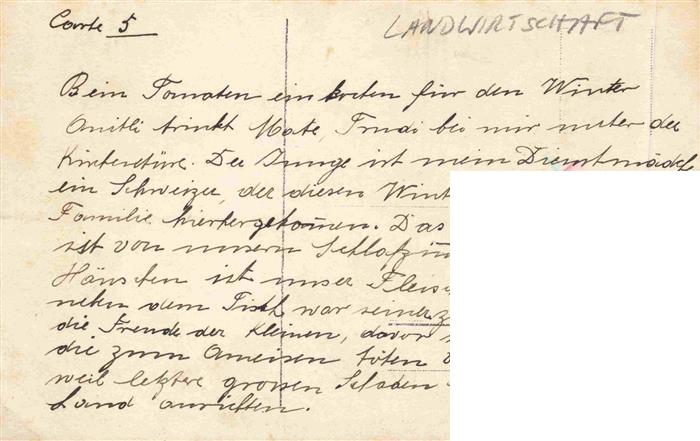 Carte 5
LANDWIRTSCHAFT
Beim Tomaten einkochen für den Winter
Anitli trinkt Mate, Trudi bei mir unter der
Hintertüre. Der Junge ist mein Dienstmädel
ein Schweizer, der diesen Wint
Familie hierhergekommen. Das
ist von unserm Schlafzim
Häuschen ist unser Fleis
neben dem Tisch war seinerz
die Freude der Kleinen, davor
die zum Ameisen töten
weil letztere grossen Schaden
Land anrichten.